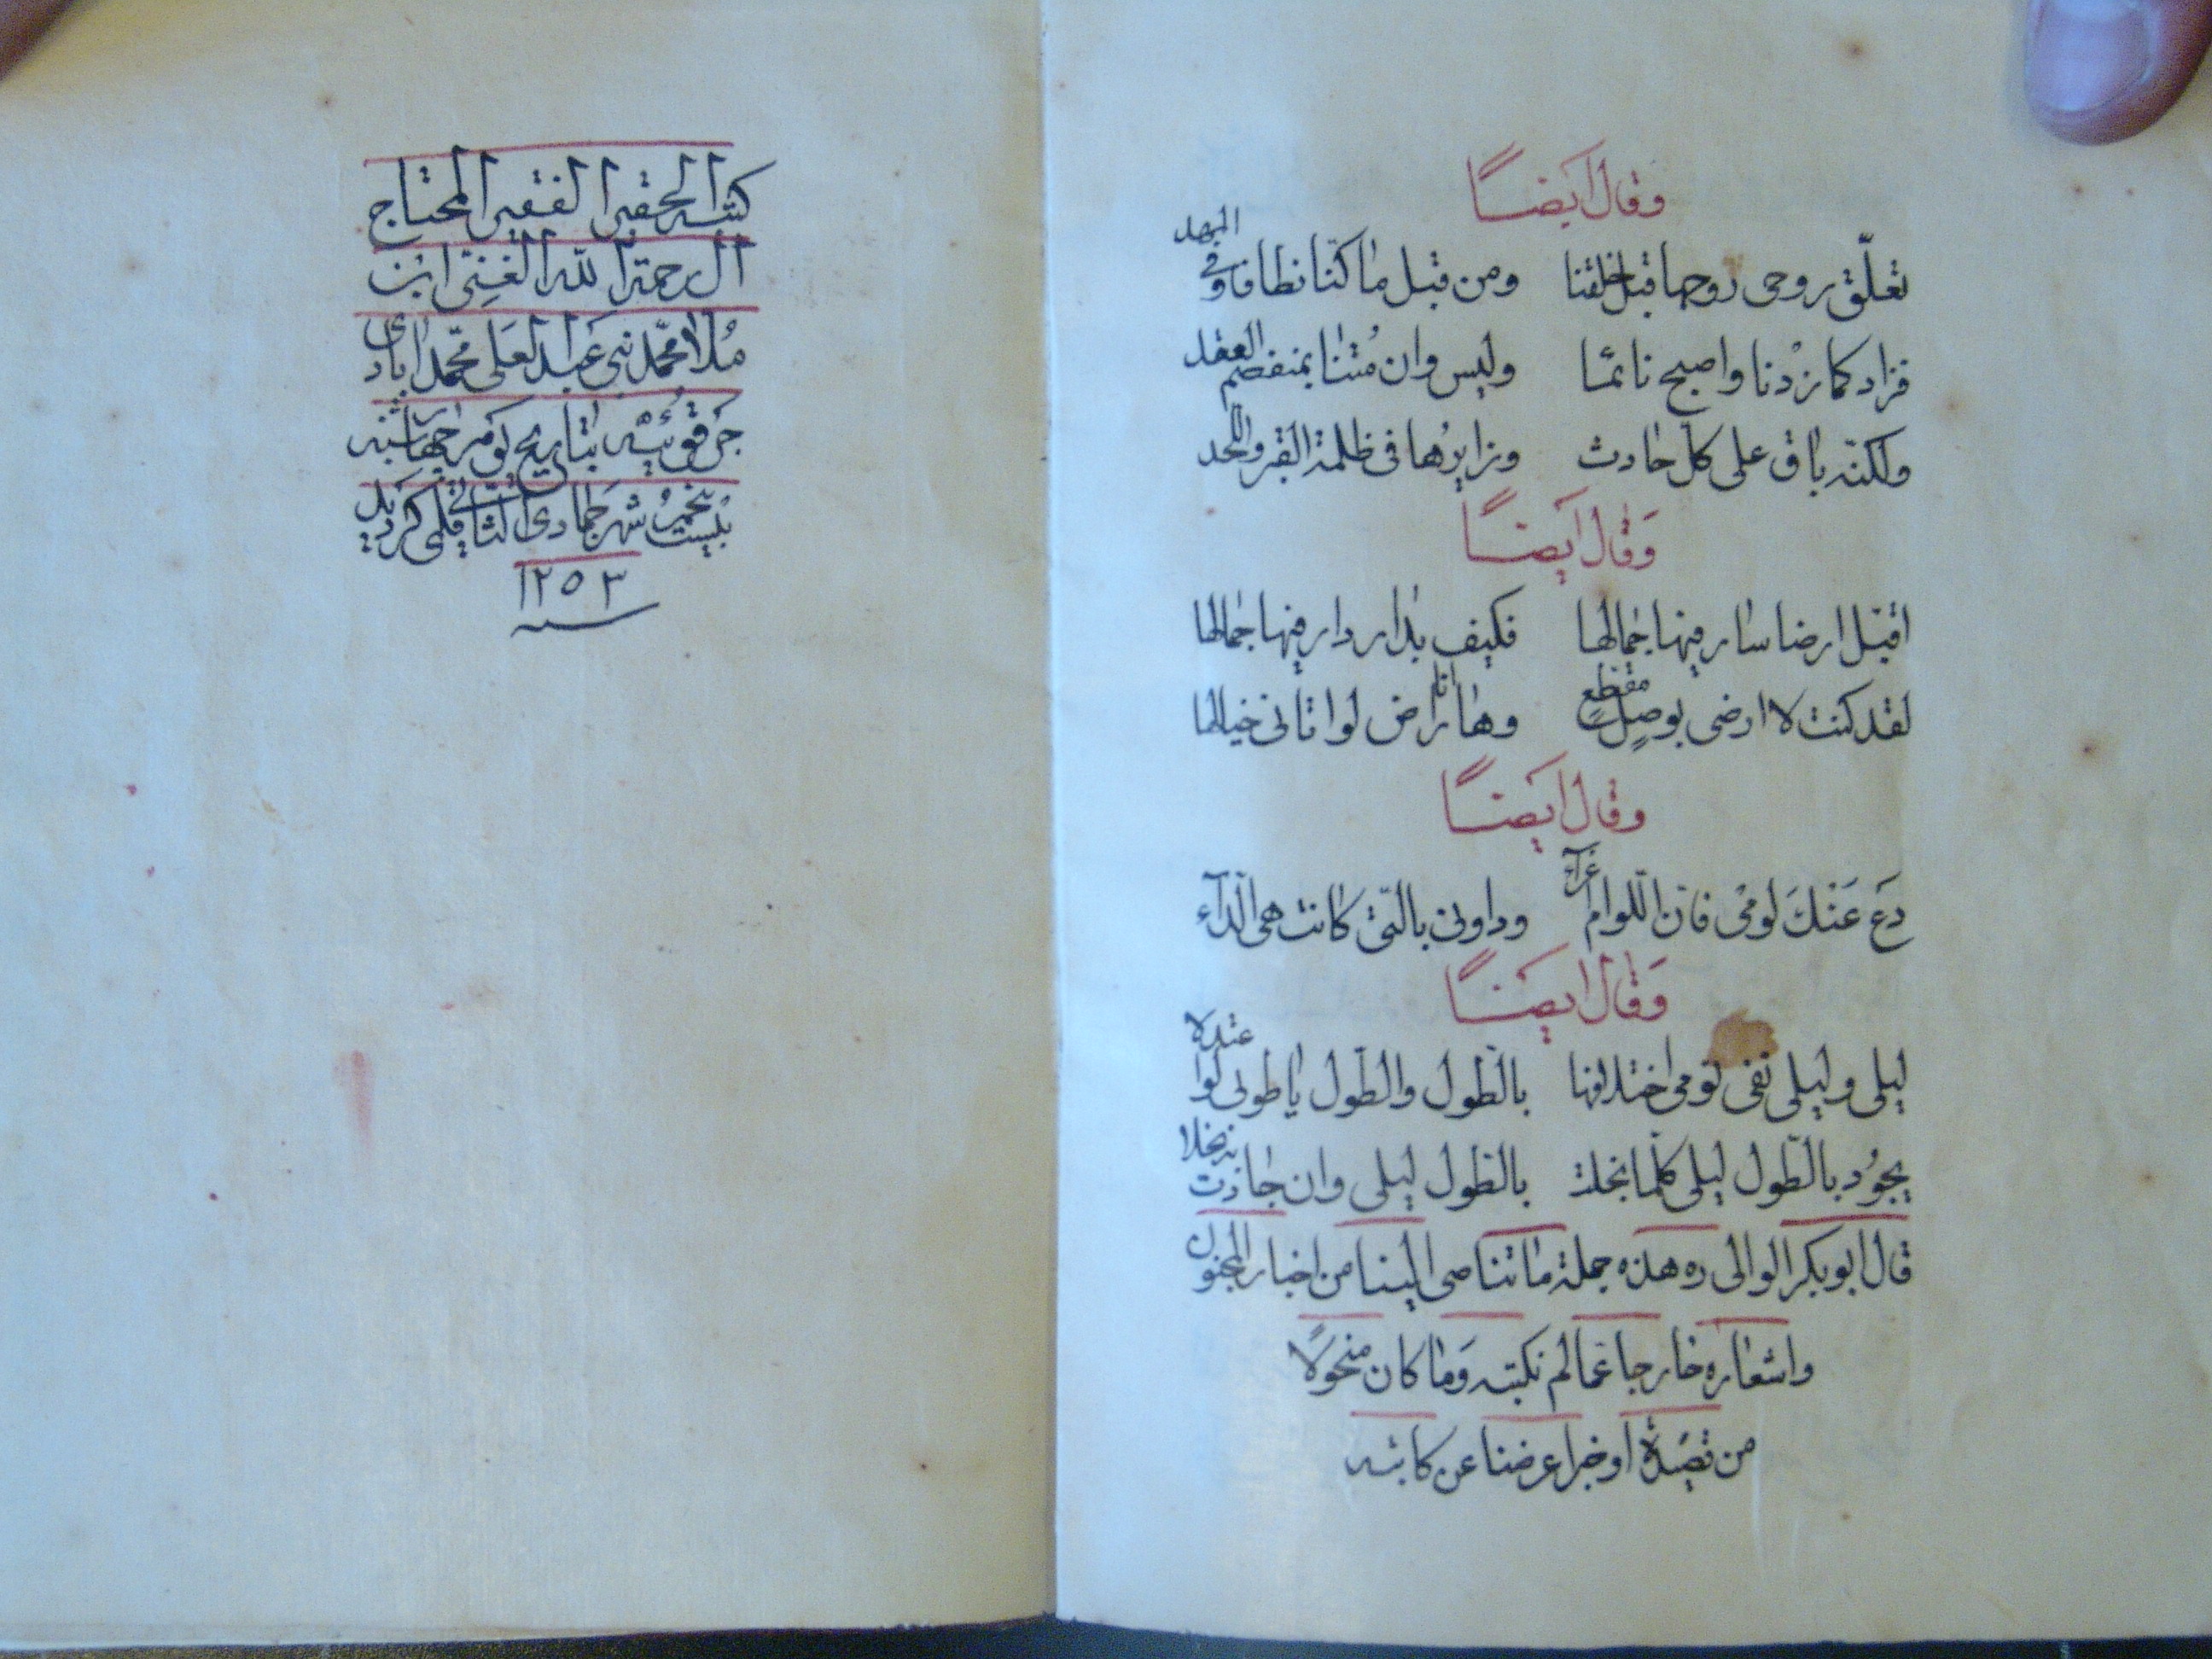 وقال ايضًا
تعلّق روحى روحها قبل خلقنا ومن قبل ما كنّا نطافا وفى المهد
فزاد كما زدنا واصبح نائما وليس وان مُتنا بمنفصم العقد
ولكنّه باق على كل حادث وزايرُها فى ظلمة القبر واللحد
وَقال ايضًا
اقبّل ارضا سار فيها جمالها فكيف بدار دار فيها جمالها
لقد كنت لا ارضى بوصلٍ مقطعٍ وها انا راض لو اتانى خيالها
وقال ايضًا
دَع عَنْكَ لومى فان اللوام اغرآء وداونى بالتى كانت هى الدآء
وَقال ايضًا
ليلى وليلى نفى نومى اختلافها بالطول والطول يا طوبى لو اعتدلا
يجُود بالطول ليلى كلّما بخلت بالطول ليلى وان جادت به بخلا
قال ابو بكر الوالى ره هذه جملة ما تناصى الينا من اخبار المجنون
واشعاره خارجا عما لم نكتبه وَما كان منحولًا
من قصيدة او خبر اعرضنا عن كابته
كتبه الحقير الفقير المحتاج
ال رحمة الله الغنِىّ ابن
مُلّا محمّد نبى عَبد العَلى محمّد ابادى
جرقوئيه بتاريخ يَوم چهارشنبه
بيست پنجم شهر جَمادى الثانى قلمى كرديد
١٢٥٣
سنه